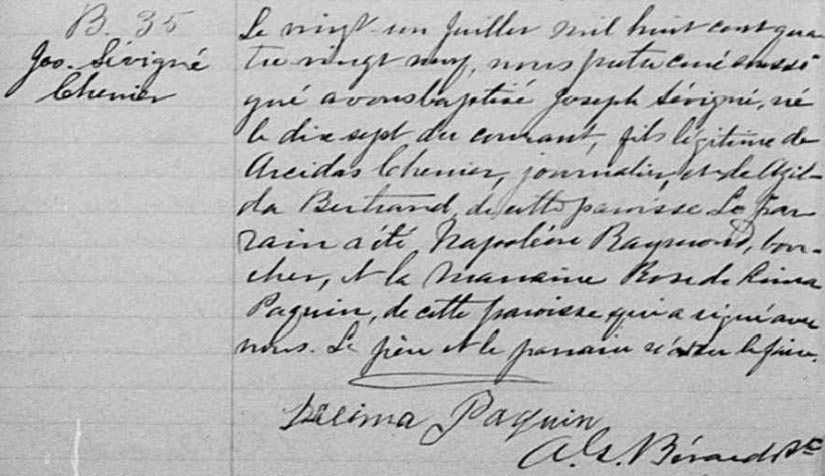 B. 35
Jos. Sévigné
Chenier
Le vingt-un Juillet mil huit cent qua-
tre vingt neuf, nous prêtre curé soussi
gné avons baptisé Joseph Sévigné, né
le dix sept du courant, fils légitime de
Arcidas Chenier, journalier, et de Azil-
da Bertrand, de cette paroisse. Le par
rain a été Napoléon Raymond, bou-
cher, et la marraine Rose de Lima
Paquin, de cette paroisse qui a signé avec
nous. Le père et le parrain n'ont su le faire.
Délima Paquin
A. S. Bérard Ptre